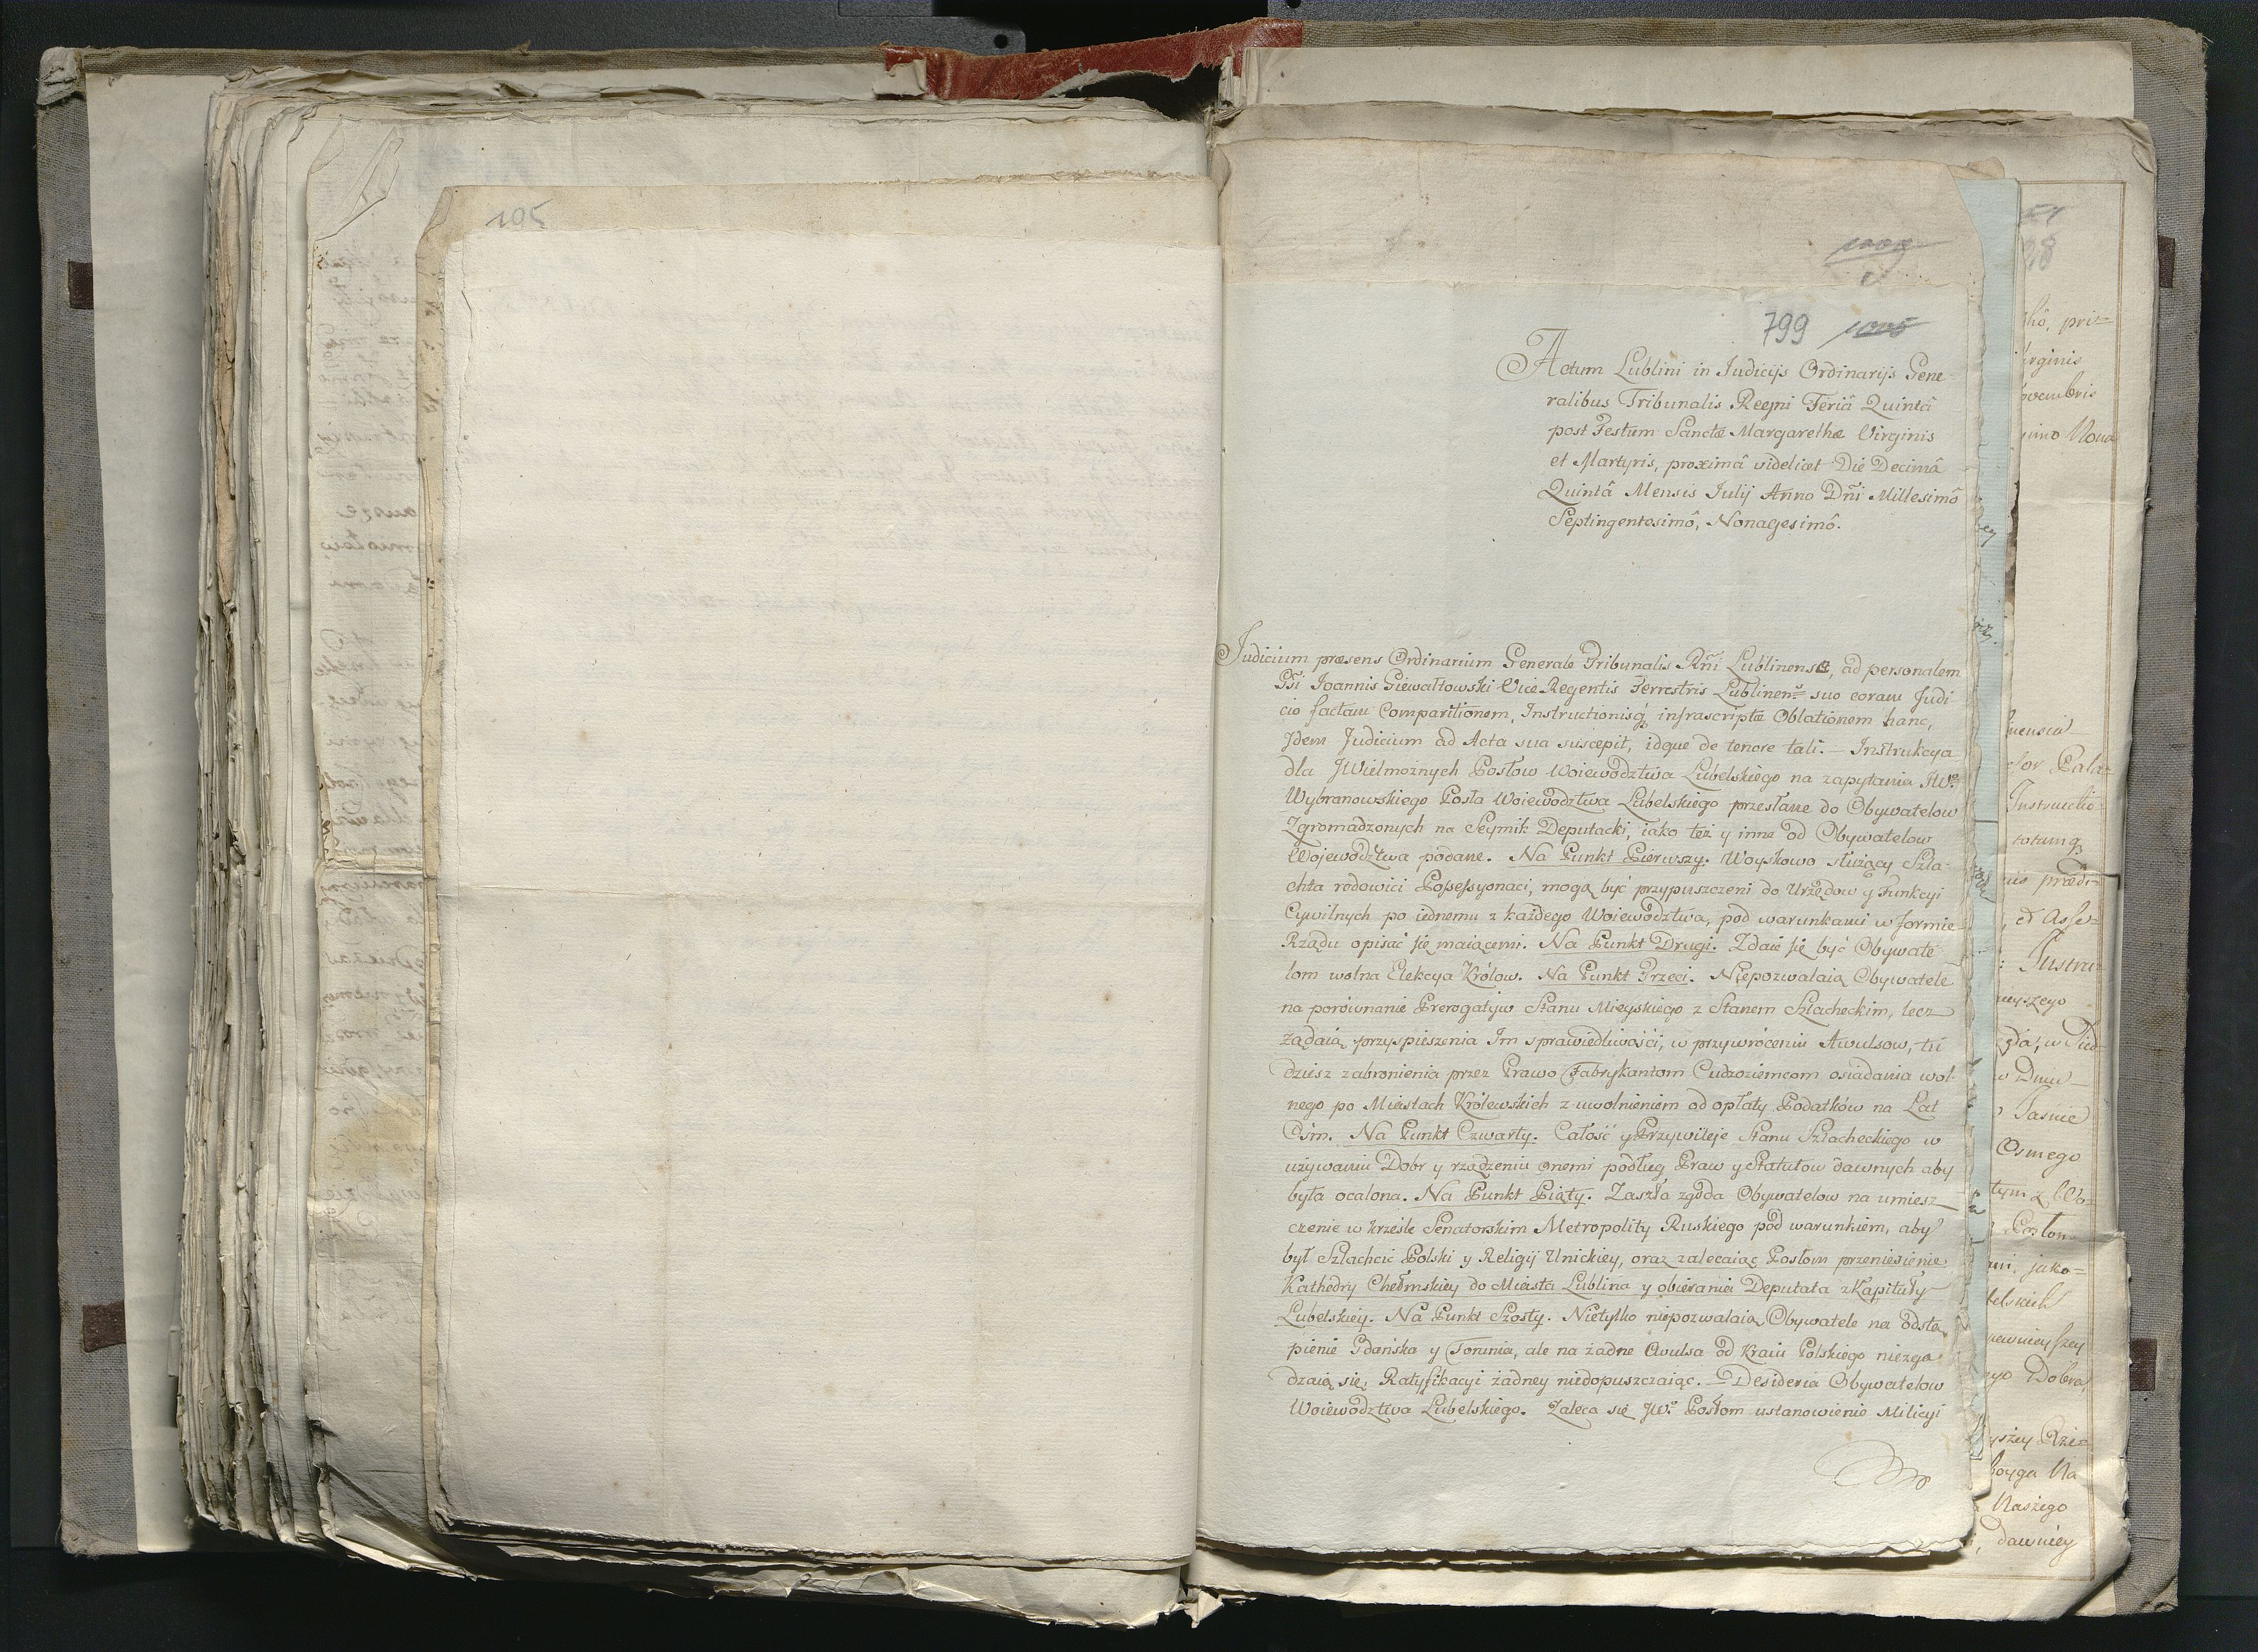 105
799
Actum Lublini in Judicijs Ordinarijs Gene-
ralibus Tribunalis Regni Feriâ Quintâ
post Festum Sanctæ Margarethæ Virginis
et Martyris, proximâ videlicet Die Decimâ
Quintâ Mensis Julij Anno Dñi Millesimô
Septingentesimô, Nonagesimô.
Judicium præsens Ordinarium Generale Tribunalis Rñi Lublinense, ad personalem
Gsi Joannis Giewałtowski Vice Regentis Terrestris Lublinen: suo coram Judi
cio factam Comparitionem, Instructionisq́ infrascriptæ Oblationem hanc,
Idem Judicium ad Acta sua suscepit, idque de tenore tali. — Instrukcya
dla JWielmożnych Posłow Woiewodztwa Lubelskiego na zapytania JW:
Wybranowskiego Posła Woiewodztwa Lubelskiego przesłane do Obywatelow
Zgromadzonych na Seymik Deputacki, iako też y inne od Obywatelow
Wojewodztwa podane. Na Punkt Pierwszy. Woyskowo służący Szla-
chta rodowici Possessyonaci, mogą być przypuszczeni do Urzędow y Funkcyi
Cywilnych po iednemu z każdego Woiewodztwa, pod warunkami w formie
Rządu opisać się maiącemi. Na Punkt Drugi. Zdaie się być Obywate-
lom wolna Elekcya Królow. Na Punkt Trzeci. Niepozwalaią Obywatele
na porównanie Prerogatyw Stanu Mieyskiego z Stanem Szlacheckim, lecz
żądaią przyspieszenia Im sprawiedliwości, w przywróceniu Awulsow, tu
dziesz zabronienia przez Prawo Fabrykantom Cudzoziemcom osiadania wol-
nego po Miastach Królewskich z uwolnieniem od opłaty Podatków na Lat
Ośm. Na Punkt Czwarty. Całość y Przywileje Stanu Szlacheckiego w
używaniu Dobr y rządzeniu onemi podług Praw y Statutow dawnych aby
była ocalona. Na Punkt Piąty. Zaszła zgoda Obywatelow na umiesz-
czenie w krześle Senatorskim Metropolity Ruskiego pod warunkiem, aby
był Szlachcic Polski y Religij Unickiey, oraz zalecaiąc Posłom przeniesienie
Kathedry Chełmskiey do Miasta Lublina y obieranie Deputata z Kapituły
Lubelskiey. Na Punkt Szosty. Nietylko niepozwalaią Obywatele na odstą
pienie Gdańska y Torunia, ale na żadne Avulsa od Kraiu Polskiego niezga
dzaią się, Ratyfikacyi żadney niedopuszczaiąc. — Desideria Obywatelow
Woiewodztwa Lubelskiego. Zaleca się JW: Posłom ustanowienie Milicyi